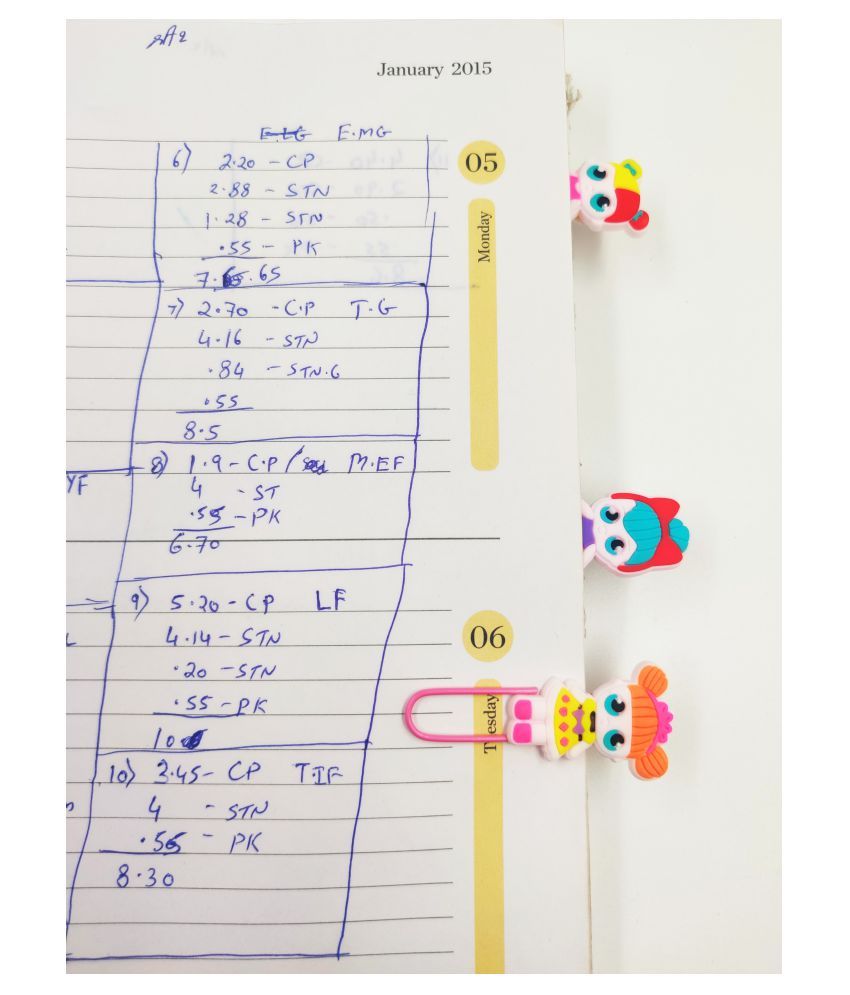 January 2015
E.MG
05
Monday
6) 2.20 - CP
2.88 - STN
1.28 - STN
.55 - PK
7. .65
7) 2.70 - C.P T.G
4.16 - STN
.84 - STN.G
.55
8.5
8) 1.9 - C.P / M.EF
4 - ST
.55 - PK
6.70
YF
06
Tuesday
9) 5.20 - CP LF
4.14 - STN
.20 - STN
.55 - PK
10
10) 3.45 - CP T.IF
4 - STN
.55 - PK
8.30